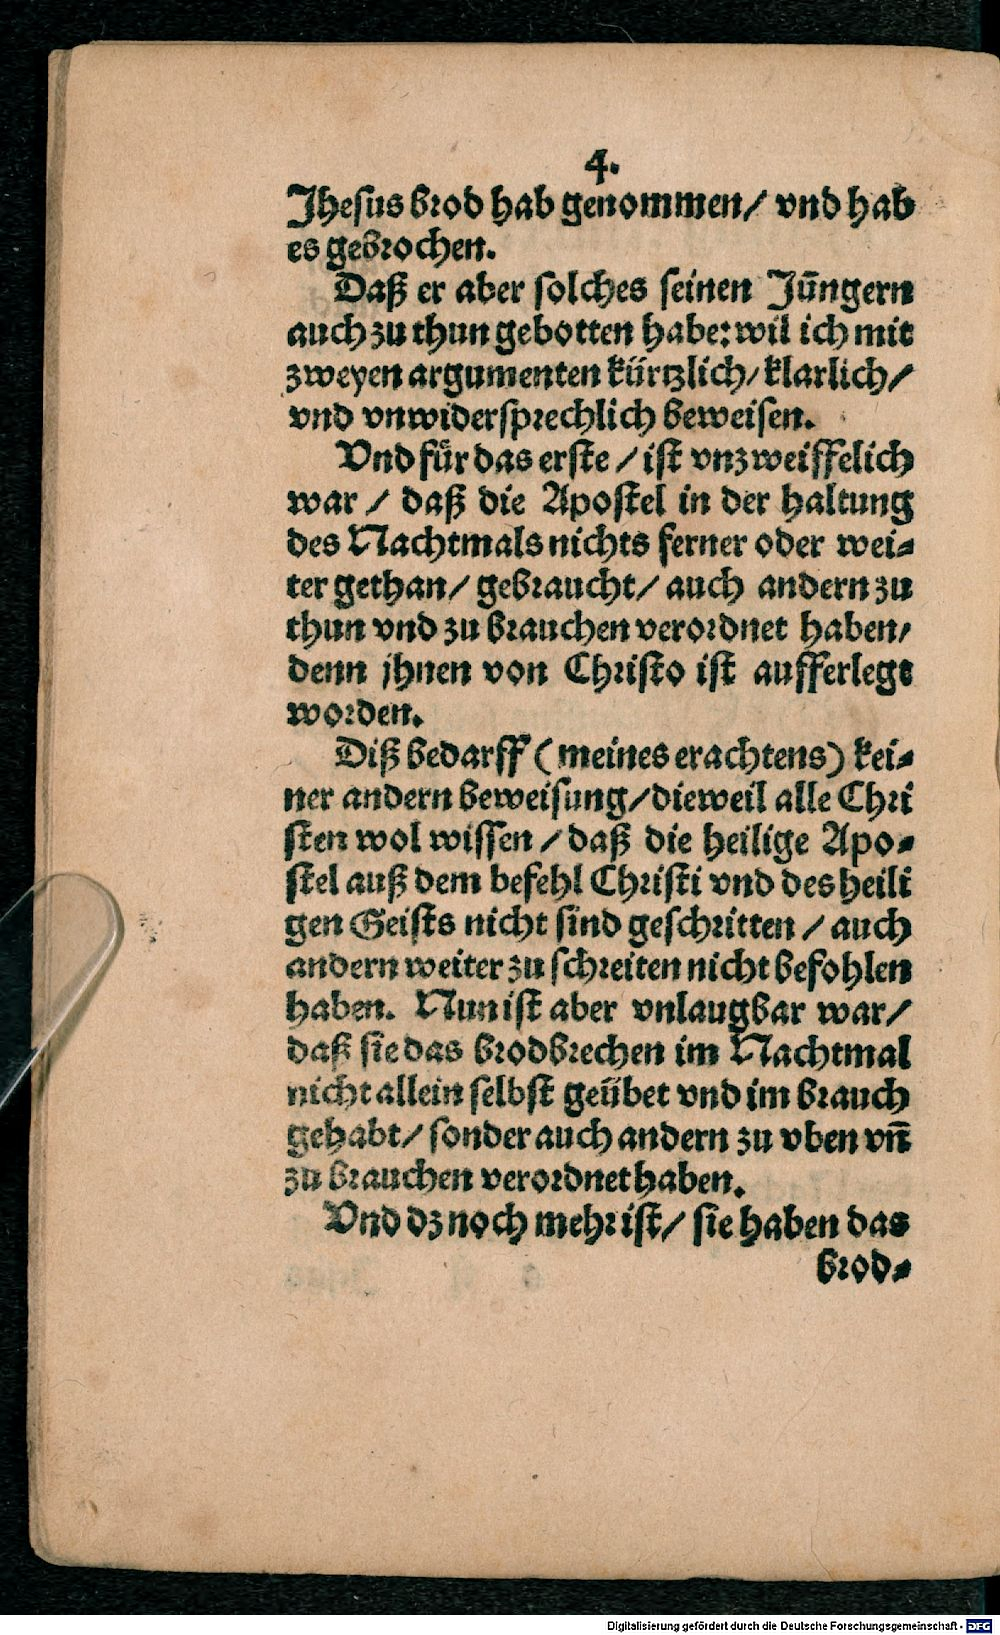 4.
Jhesus brod hab genommen/ vnd hab
es gebrochen.
Daß er aber solches seinen Jüngern
auch zu thun gebotten habe: wil ich mit
zweyen argumenten kürtzlich/ klarlich/
vnd vnwidersprechlich beweisen.
Vnd für das erste / ist vnzweiffelich
war / daß die Apostel in der haltung
des Nachtmals nichts ferner oder wei⸗
ter gethan/ gebraucht/ auch andern zu
thun vnd zu brauchen verordnet haben/
denn jhnen von Christo ist aufferlegt
worden.
Diß bedarff (meines erachtens) kei⸗
ner andern beweisung/ dieweil alle Chri
sten wol wissen / daß die heilige Apo⸗
stel auß dem befehl Christi vnd des heili
gen Geists nicht sind geschritten / auch
andern weiter zu schreiten nicht befohlen
haben. Nun ist aber vnlaugbar war/
daß sie das brodbrechen im Nachtmal
nicht allein selbst geübet vnd im brauch
gehabt/ sonder auch andern zu vben vñ
zu brauchen verordnet haben.
Vnd dz noch mehr ist/ sie haben das
brod⸗
Digitalisierung gefördert durch die Deutsche Forschungsgemeinschaft - DFG